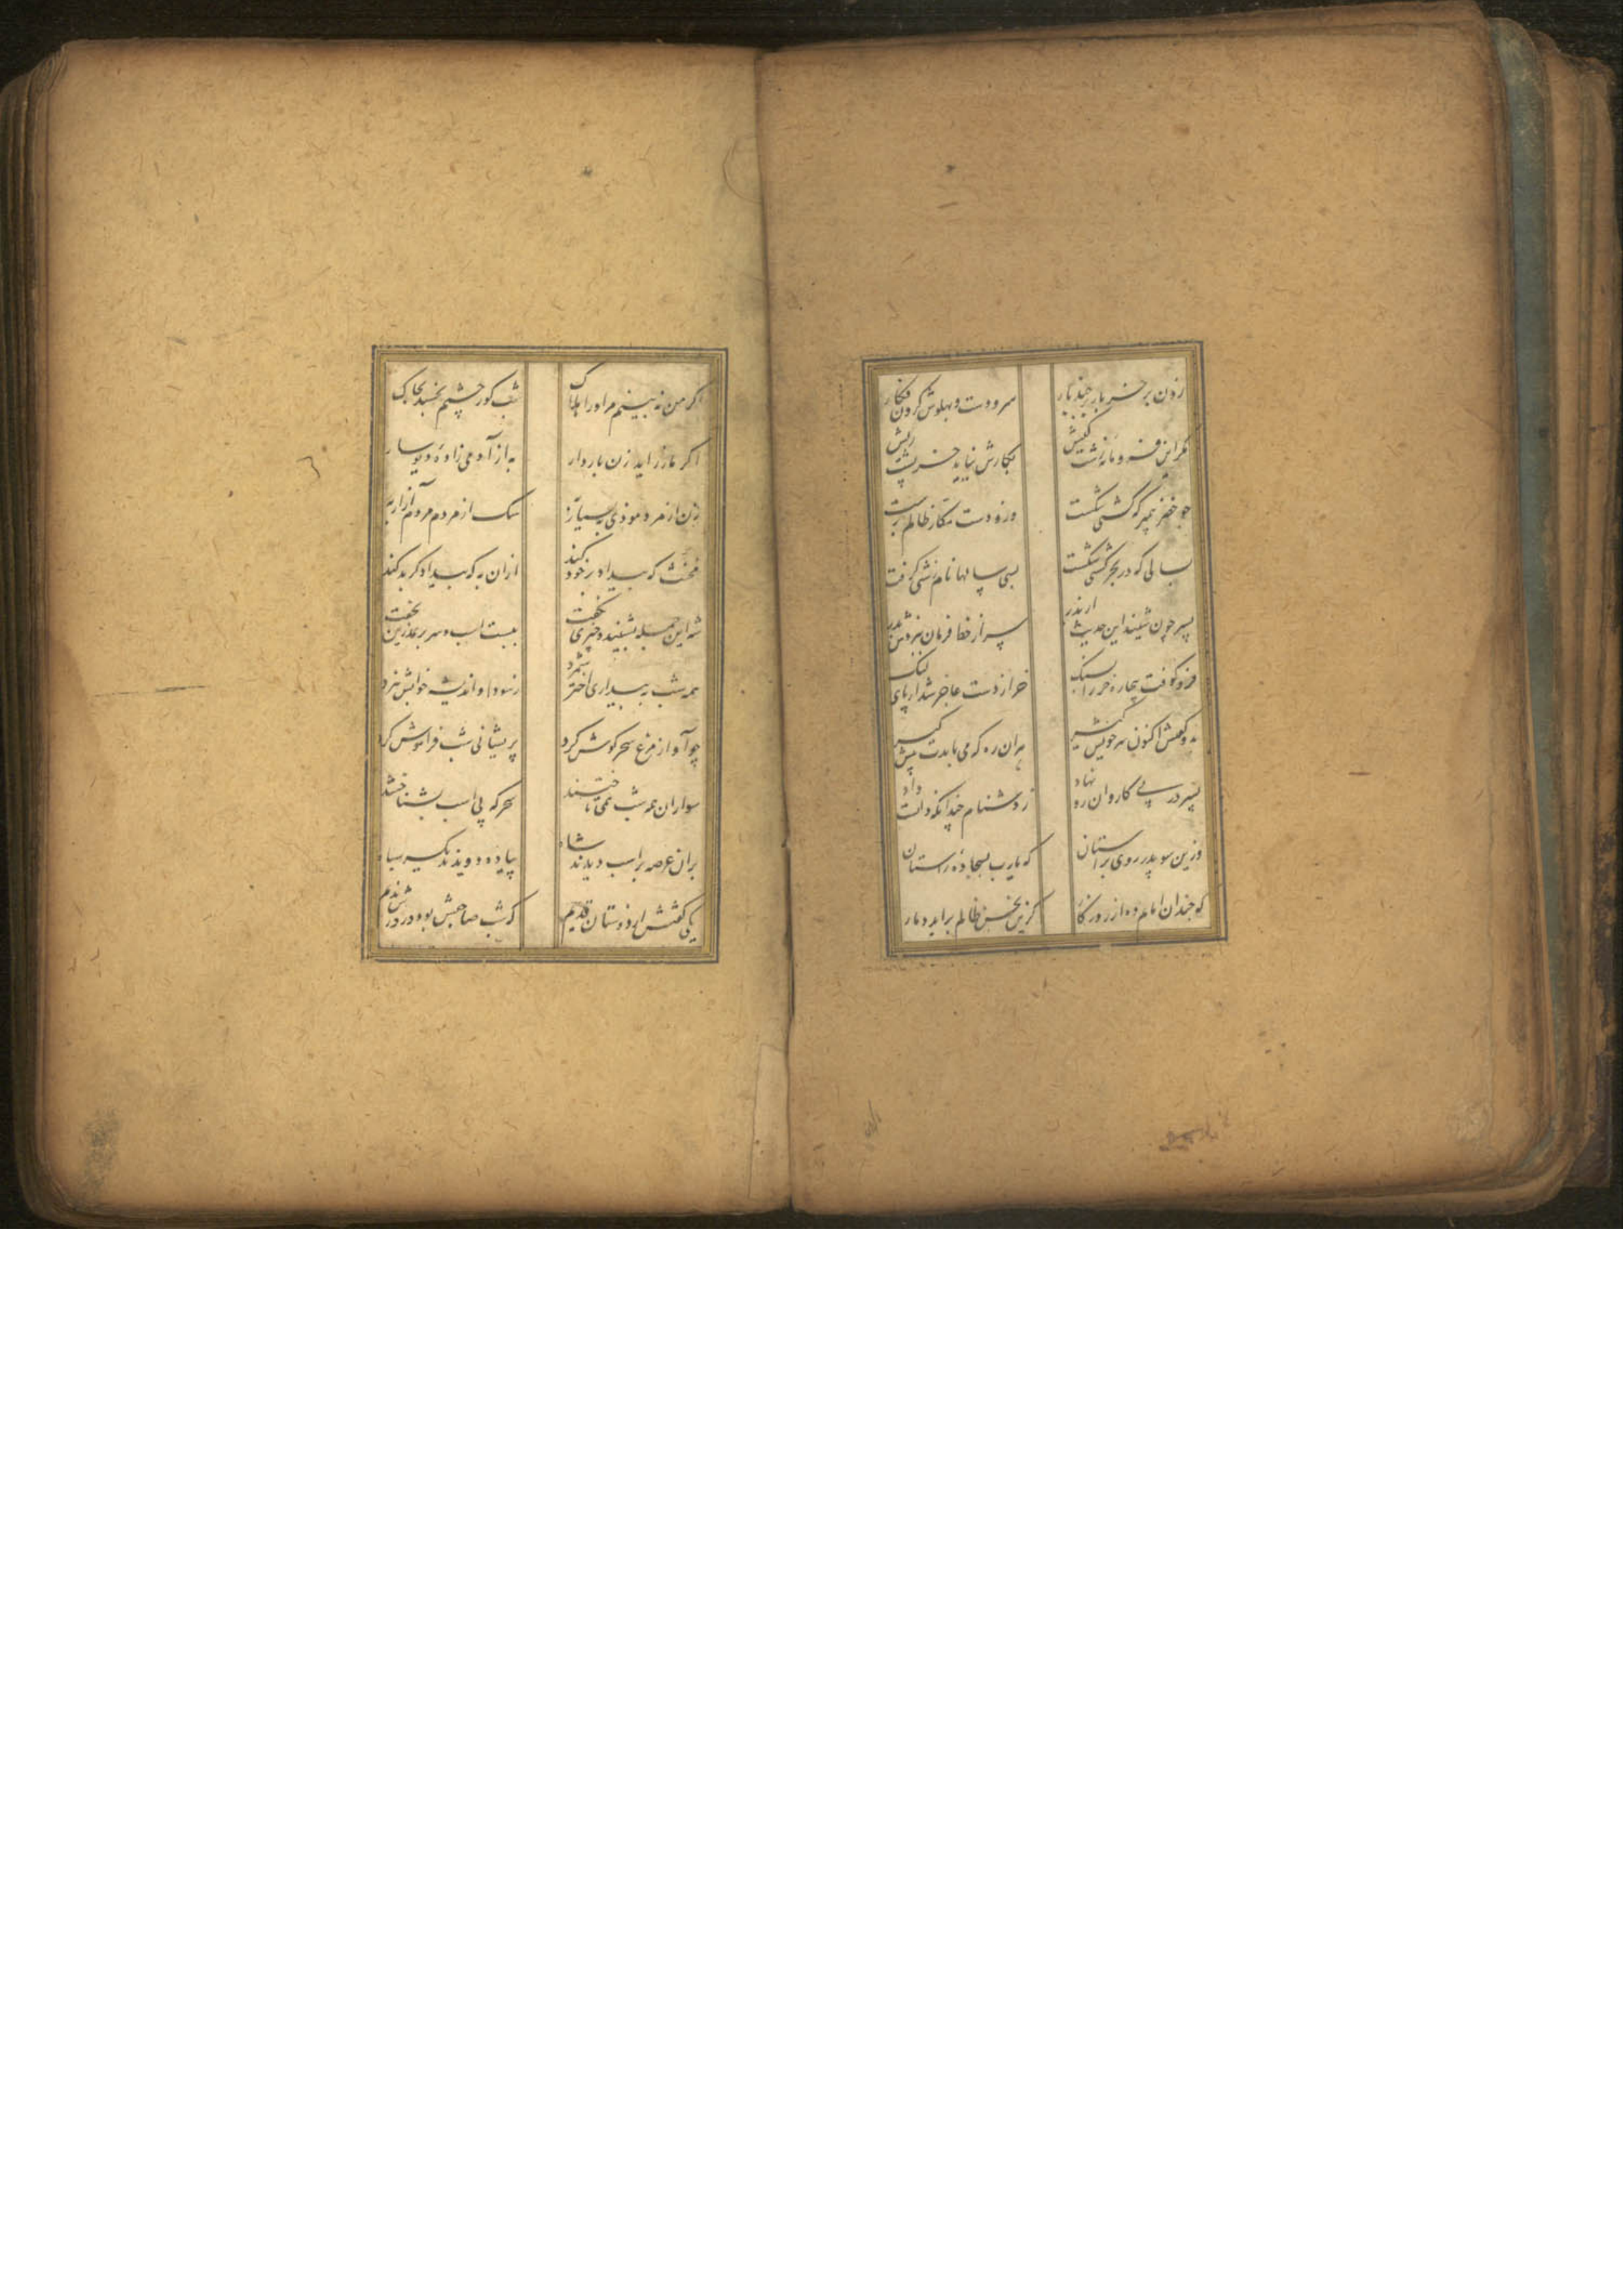 زدن بر خر نامور چند بار
سر و دست و پهلوش کردن فکار
مگر این فرومایه زشت کیش
بکارش نیاید خر پشت ریش
چو خضر پیمبر که کشتی شکست
وزو دست جبار ظالم ببست
بسالی که در بحر کشتی شکست
بسی سالها نام زشتی گرفت
پسر چون شنید این حدیث از پدر
سر از خط فرمان نبردش بدر
فرو کوفت بیچاره خر را بسنگ
خر از دست عاجز شد از پای لنگ
بدو گفتش اکنون سر خویش گیر
هر آن ره که می بایدت پیش گیر
پسر در پی کاروان رو نهاد
ز دشنام چندانکه دانست داد
وزین سو پدر روی بر آستان
که یارب بسجاده راستان
که چندان امانم ده از روزگار
کزین نحس ظالم برآید دمار
اگر من نه بینم مر او را هلاک
شب گور چشمم نخسبد بخاک
اگر مار زاید زن باردار
به از آدمی زاده دیوسار
زن از مرد موذی بسیار به
سگ از مردم مردم آزار به
مخنث که بیداد بر خود کند
ازان به که بیداد گر بد کند
شه این جمله بشنید و چیزی نگفت
ببست اسب و سر بر نمدزین بخفت
همه شب به بیداری اختر شمرد
ز سودا و اندیشه خوابش نبرد
چو آواز مرغ سحر گوش کرد
پریشانی شب فراموش کرد
سواران همه شب همی تاختند
سحرگه پی اسب بشناختند
بران عرصه بر اسب دیدند شاه
پیاده دویدند یکسر سپاه
یکی گفتش از دوستان قدیم
که شب صاحبش بود و در در ندیم